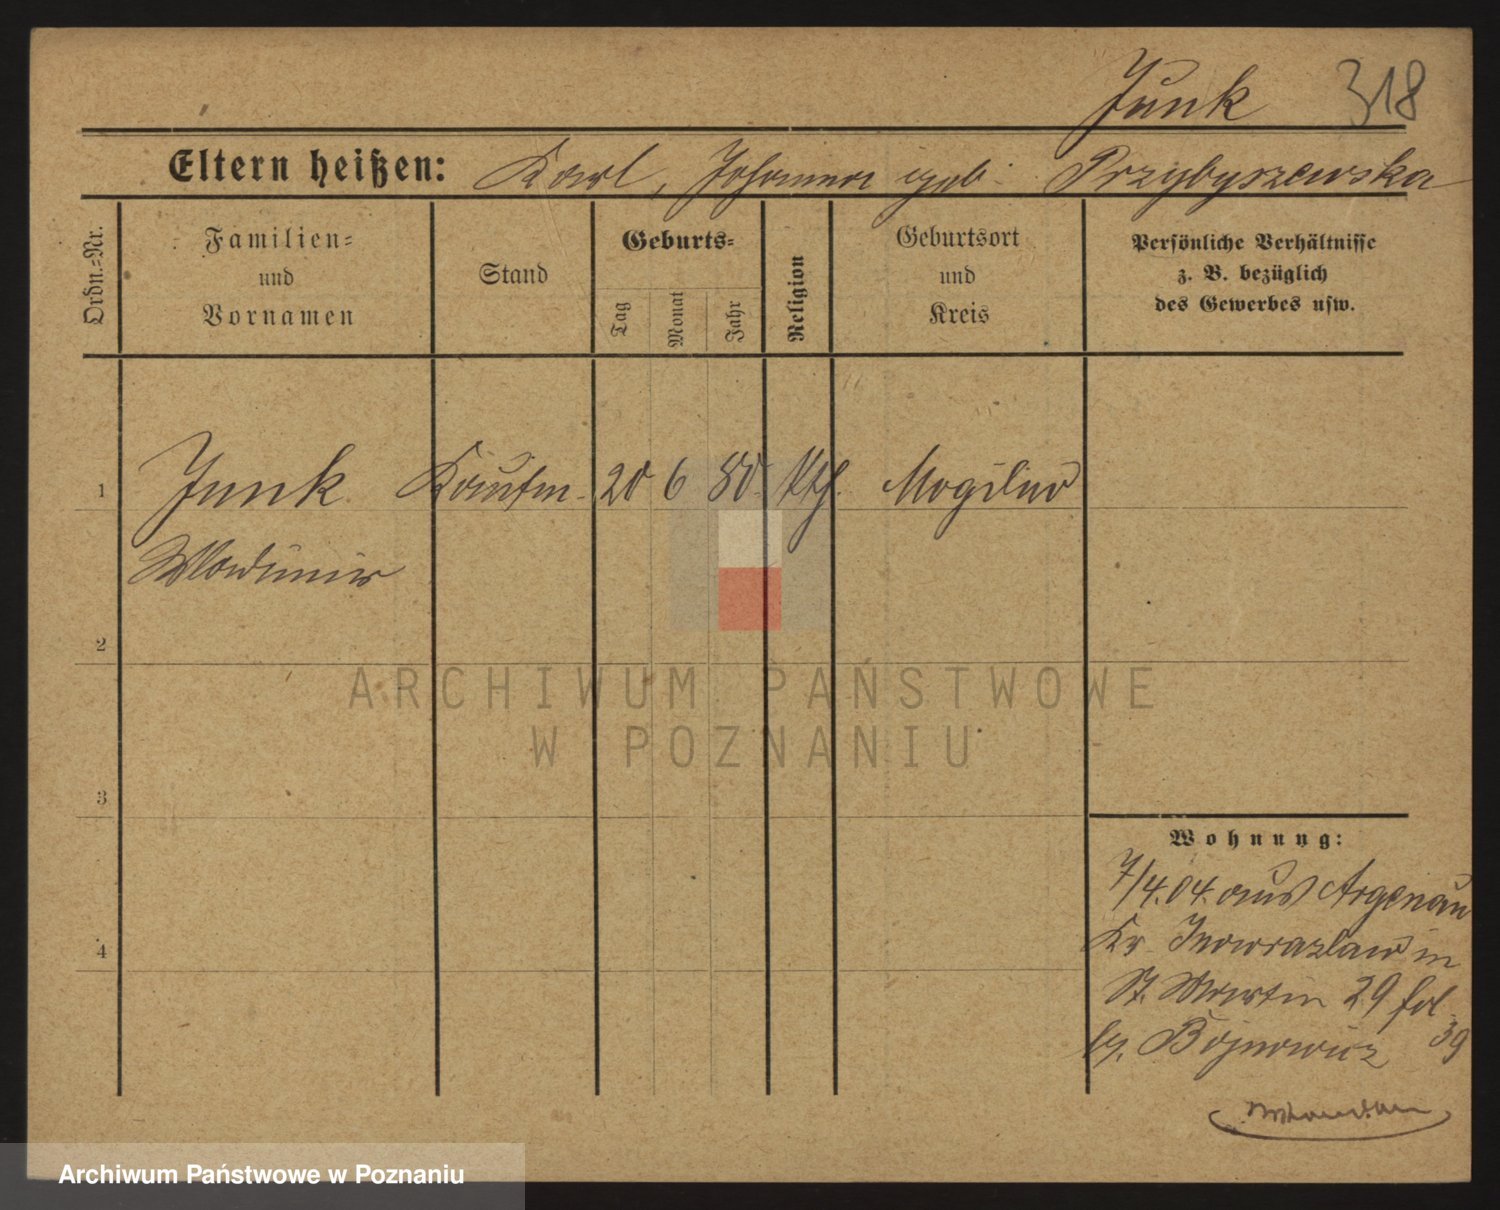 Junk 318
Eltern heißen: Karl, Johanna geb. Przybyszewska
Ordn.-Nr.
Familien-
und
Vornamen
Stand
Geburts-
Tag
Monat
Jahr
Religion
Geburtsort
und
Kreis
Persönliche Verhältnisse
z. B. bezüglich
des Gewerbes usw.
1 Junk Kaufm. 20 6 80 Kth. Mogilno
Wladimir
2
3
4
ARCHIWUM PAŃSTWOWE
W POZNANIU
Wohnung:
7/4.04. aus Argenau
Kr. Inowrazlaw in
St. Martin 29 fol.
39
by. Bojnowicz
Archiwum Państwowe w Poznaniu